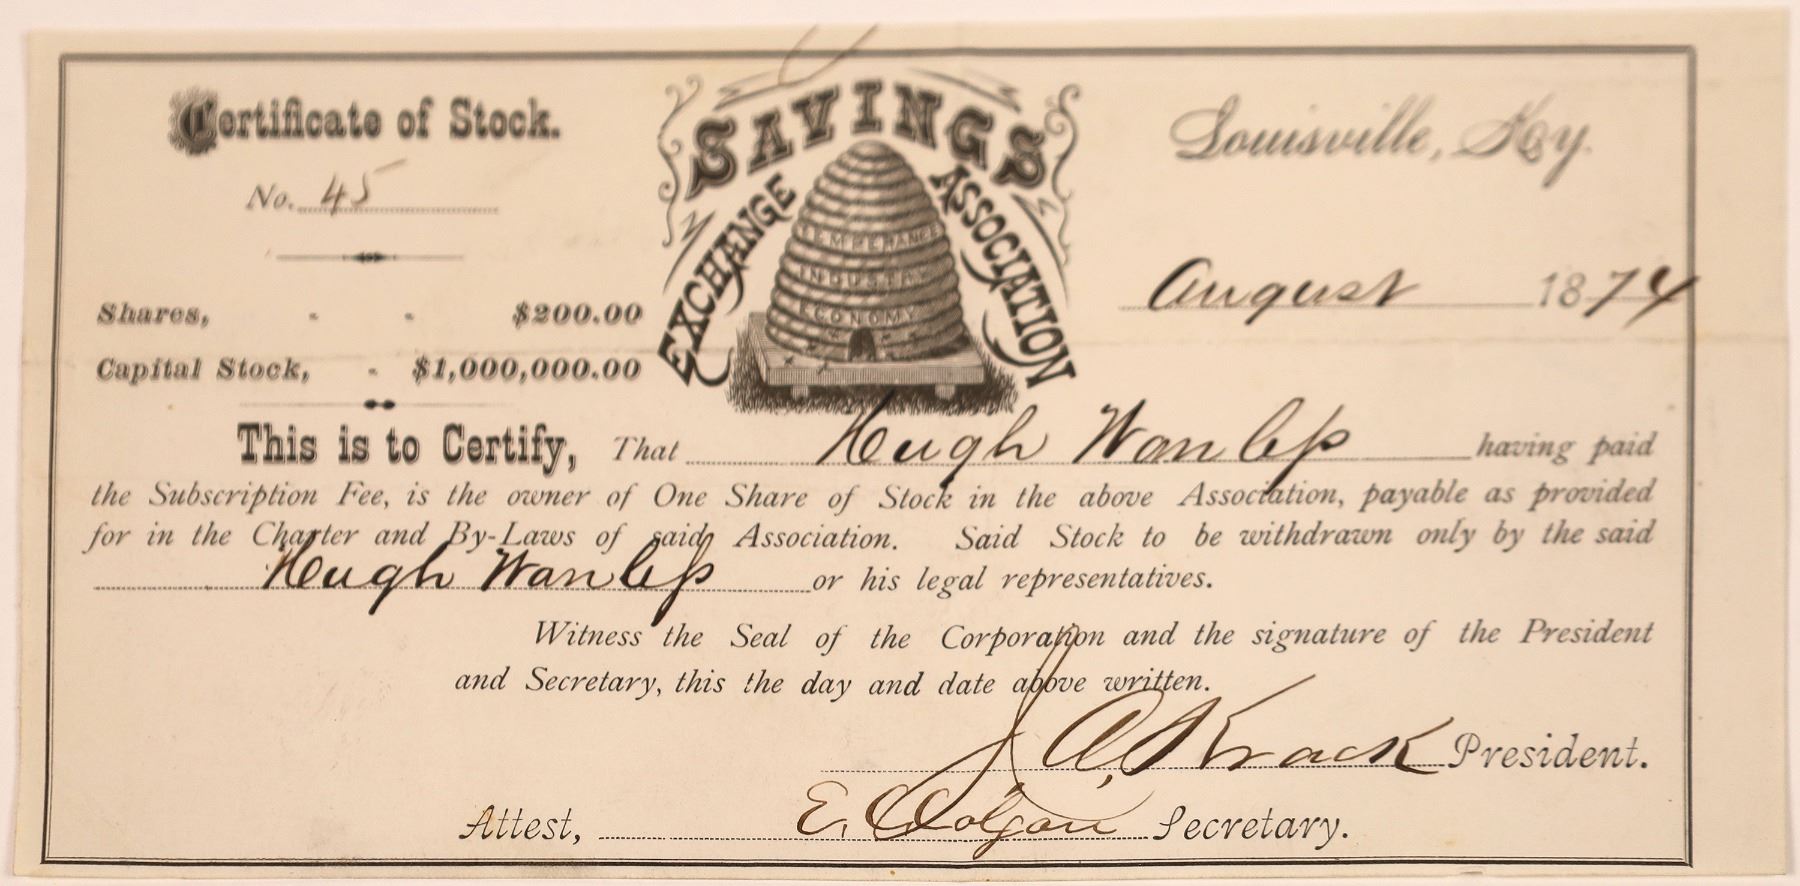 Certificate of Stock.
No. 45
Shares, - - $200.00
Capital Stock, - $1,000,000.00
EXCHANGE SAVINGS ASSOCIATION
TEMPERANCE
INDUSTRY
ECONOMY
Louisville, Ky.
August 1874
This is to Certify, That Hugh Wanless having paid
the Subscription Fee, is the owner of One Share of Stock in the above Association, payable as provided
for in the Charter and By-Laws of said Association. Said Stock to be withdrawn only by the said
Hugh Wanless or his legal representatives.
Witness the Seal of the Corporation and the signature of the President
and Secretary, this the day and date above written.
J. A. Krack President.
Attest, E. Dolgan Secretary.